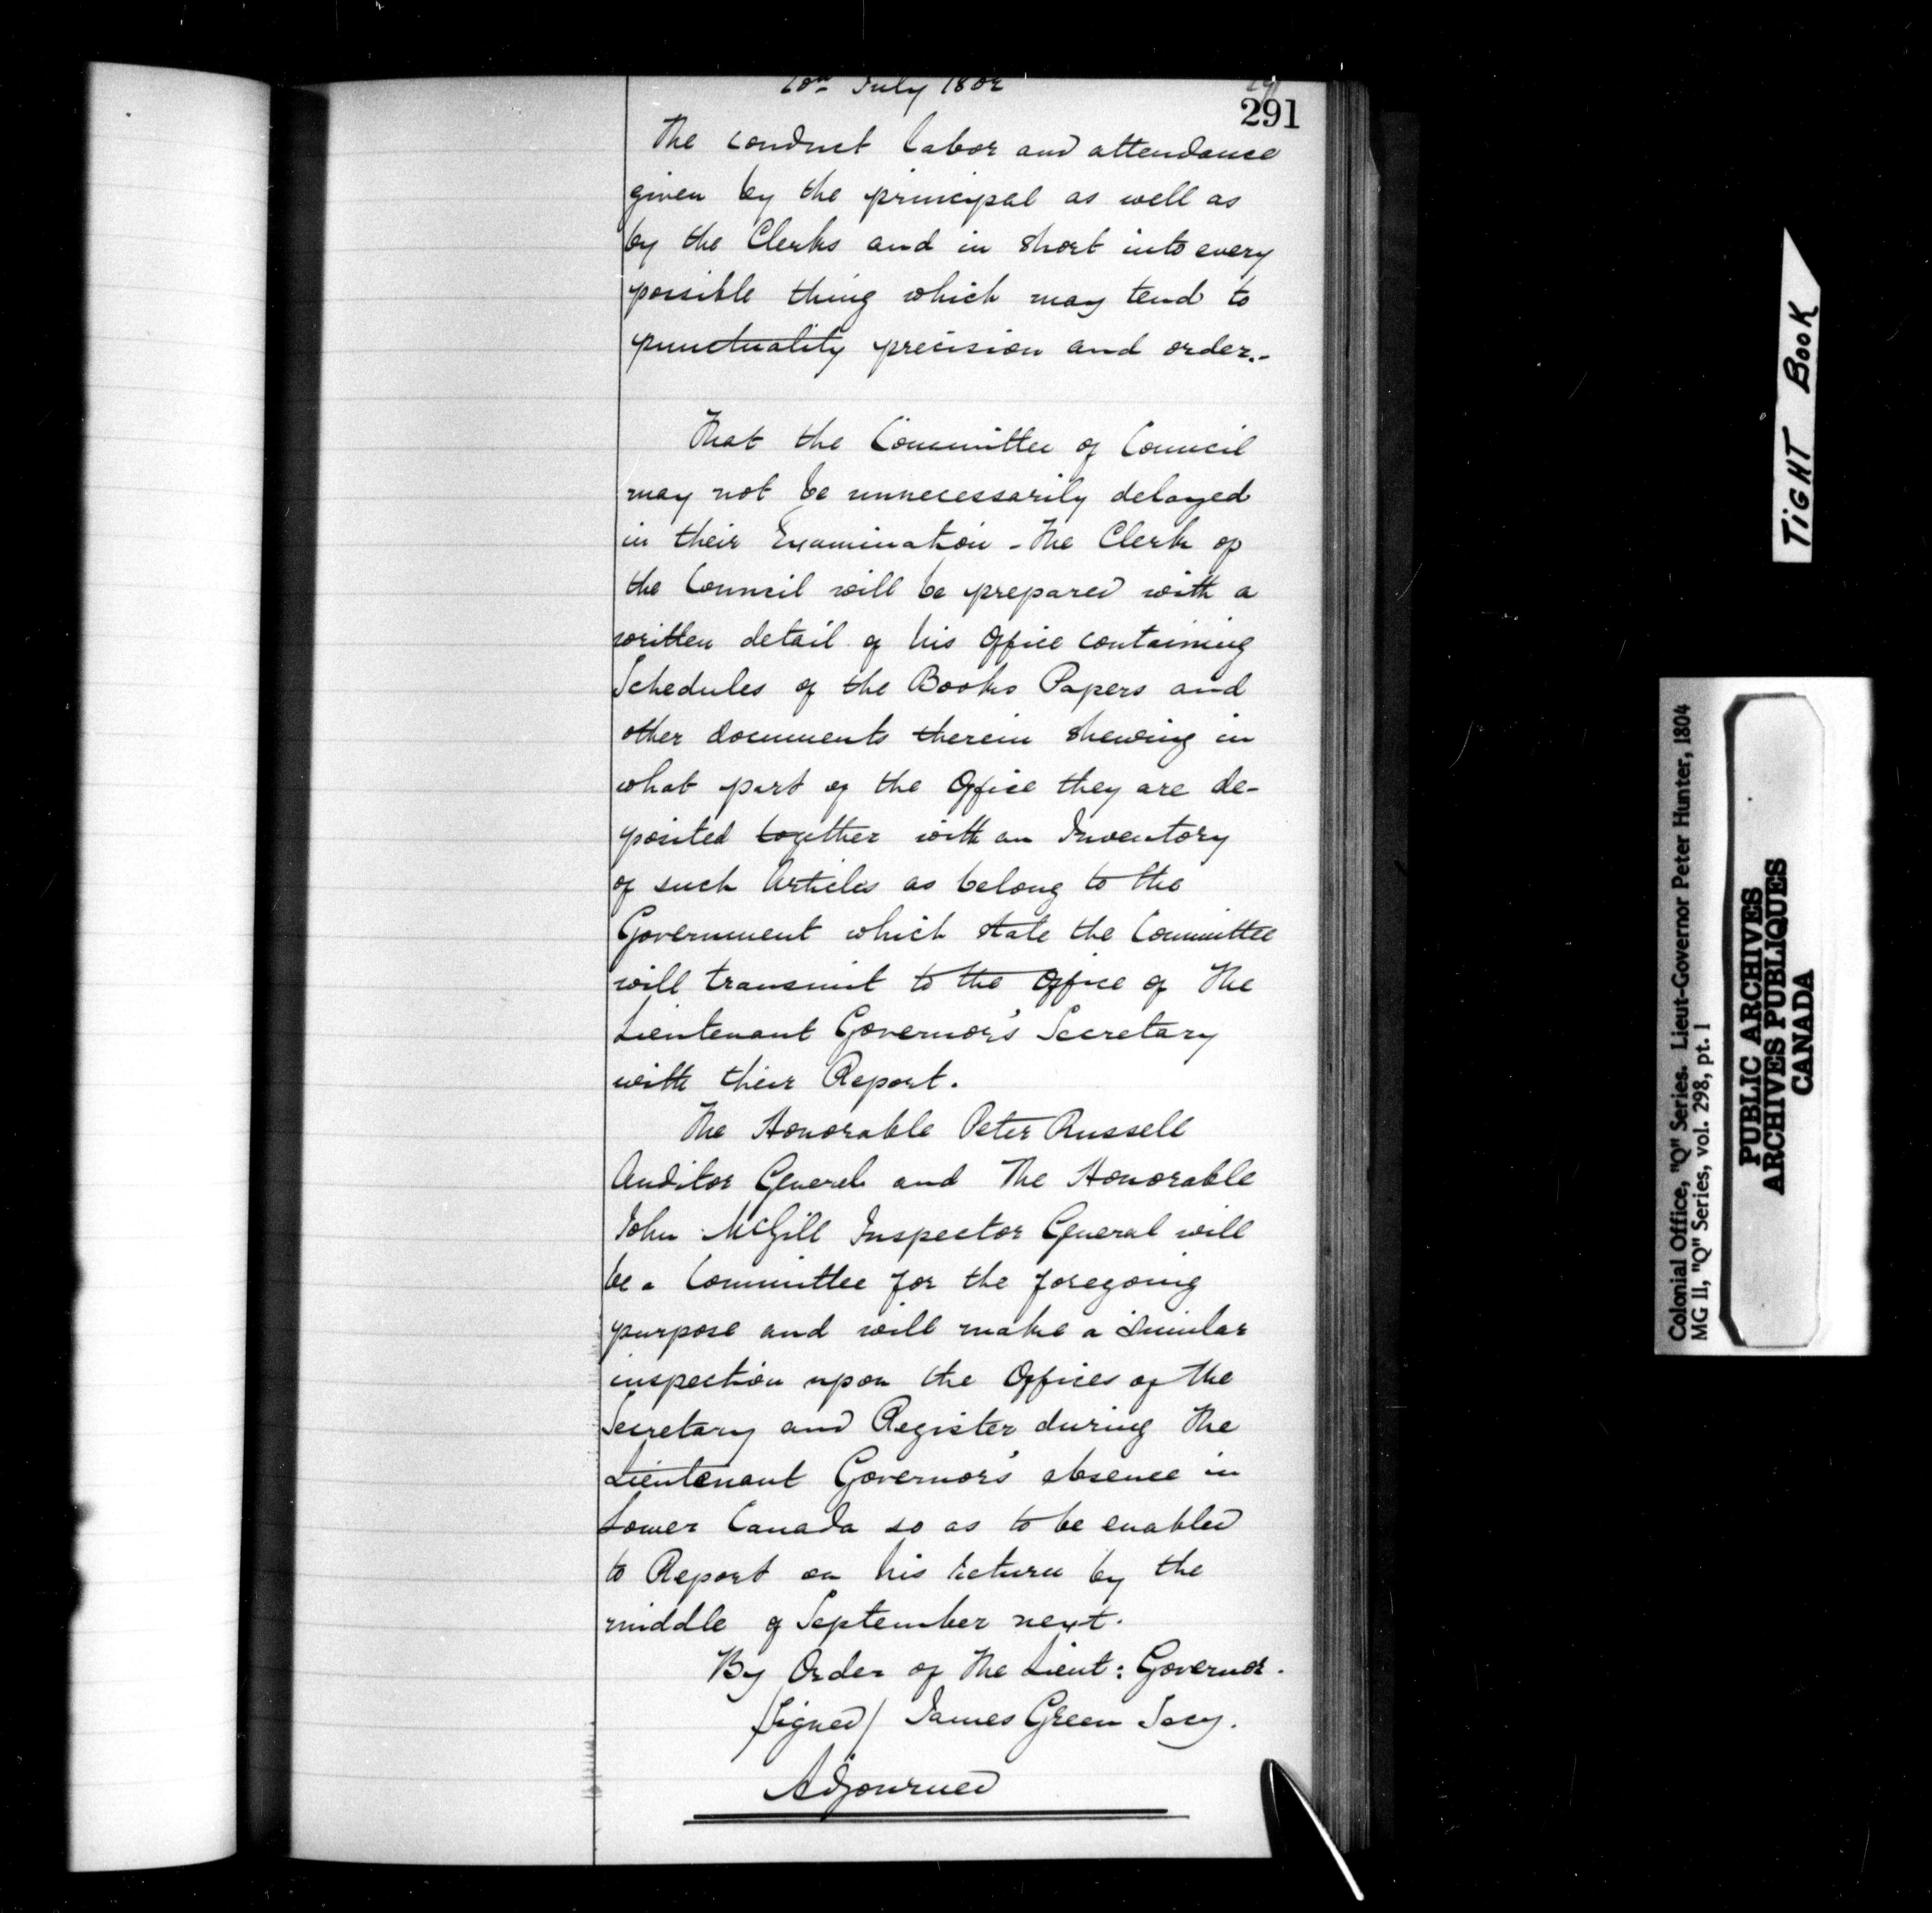 July 1802
291
The conduct labor and attendance
given by the principal as well as
by the Clerks and in short into every
possible thing which may tend to
punctuality precision and order.-
That the Committee of Council
may not be unnecessarily delayed
in their Examination - The Clerk of
the Council will be prepared with a
written detail of his Office containing
Schedules of the Books Papers and
other documents therein shewing in
what part of the Office they are de-
posited together with an Inventory
of such Articles as belong to the
Government which state the Committee
will transmit to the Office of The
Lieutenant Governor's Secretary
with their Report.
The Honorable Peter Russell
Auditor General and The Honorable
John McGill Inspector General will
be a Committee for the foregoing
purpose and will make a similar
inspection upon the Offices of the
Secretary and Register during The
Lieutenant Governor's absence in
Lower Canada so as to be enabled
to Report on his return by the
middle of September next.
By Order of The Lieut: Governor.
/signed/ James Green Secy.
Adjourned
TIGHT BOOK
Colonial Office, "Q" Series. Lieut-Governor Peter Hunter, 1804
MG 11, "Q" Series, vol. 298, pt. 1
PUBLIC ARCHIVES
ARCHIVES PUBLIQUES
CANADA